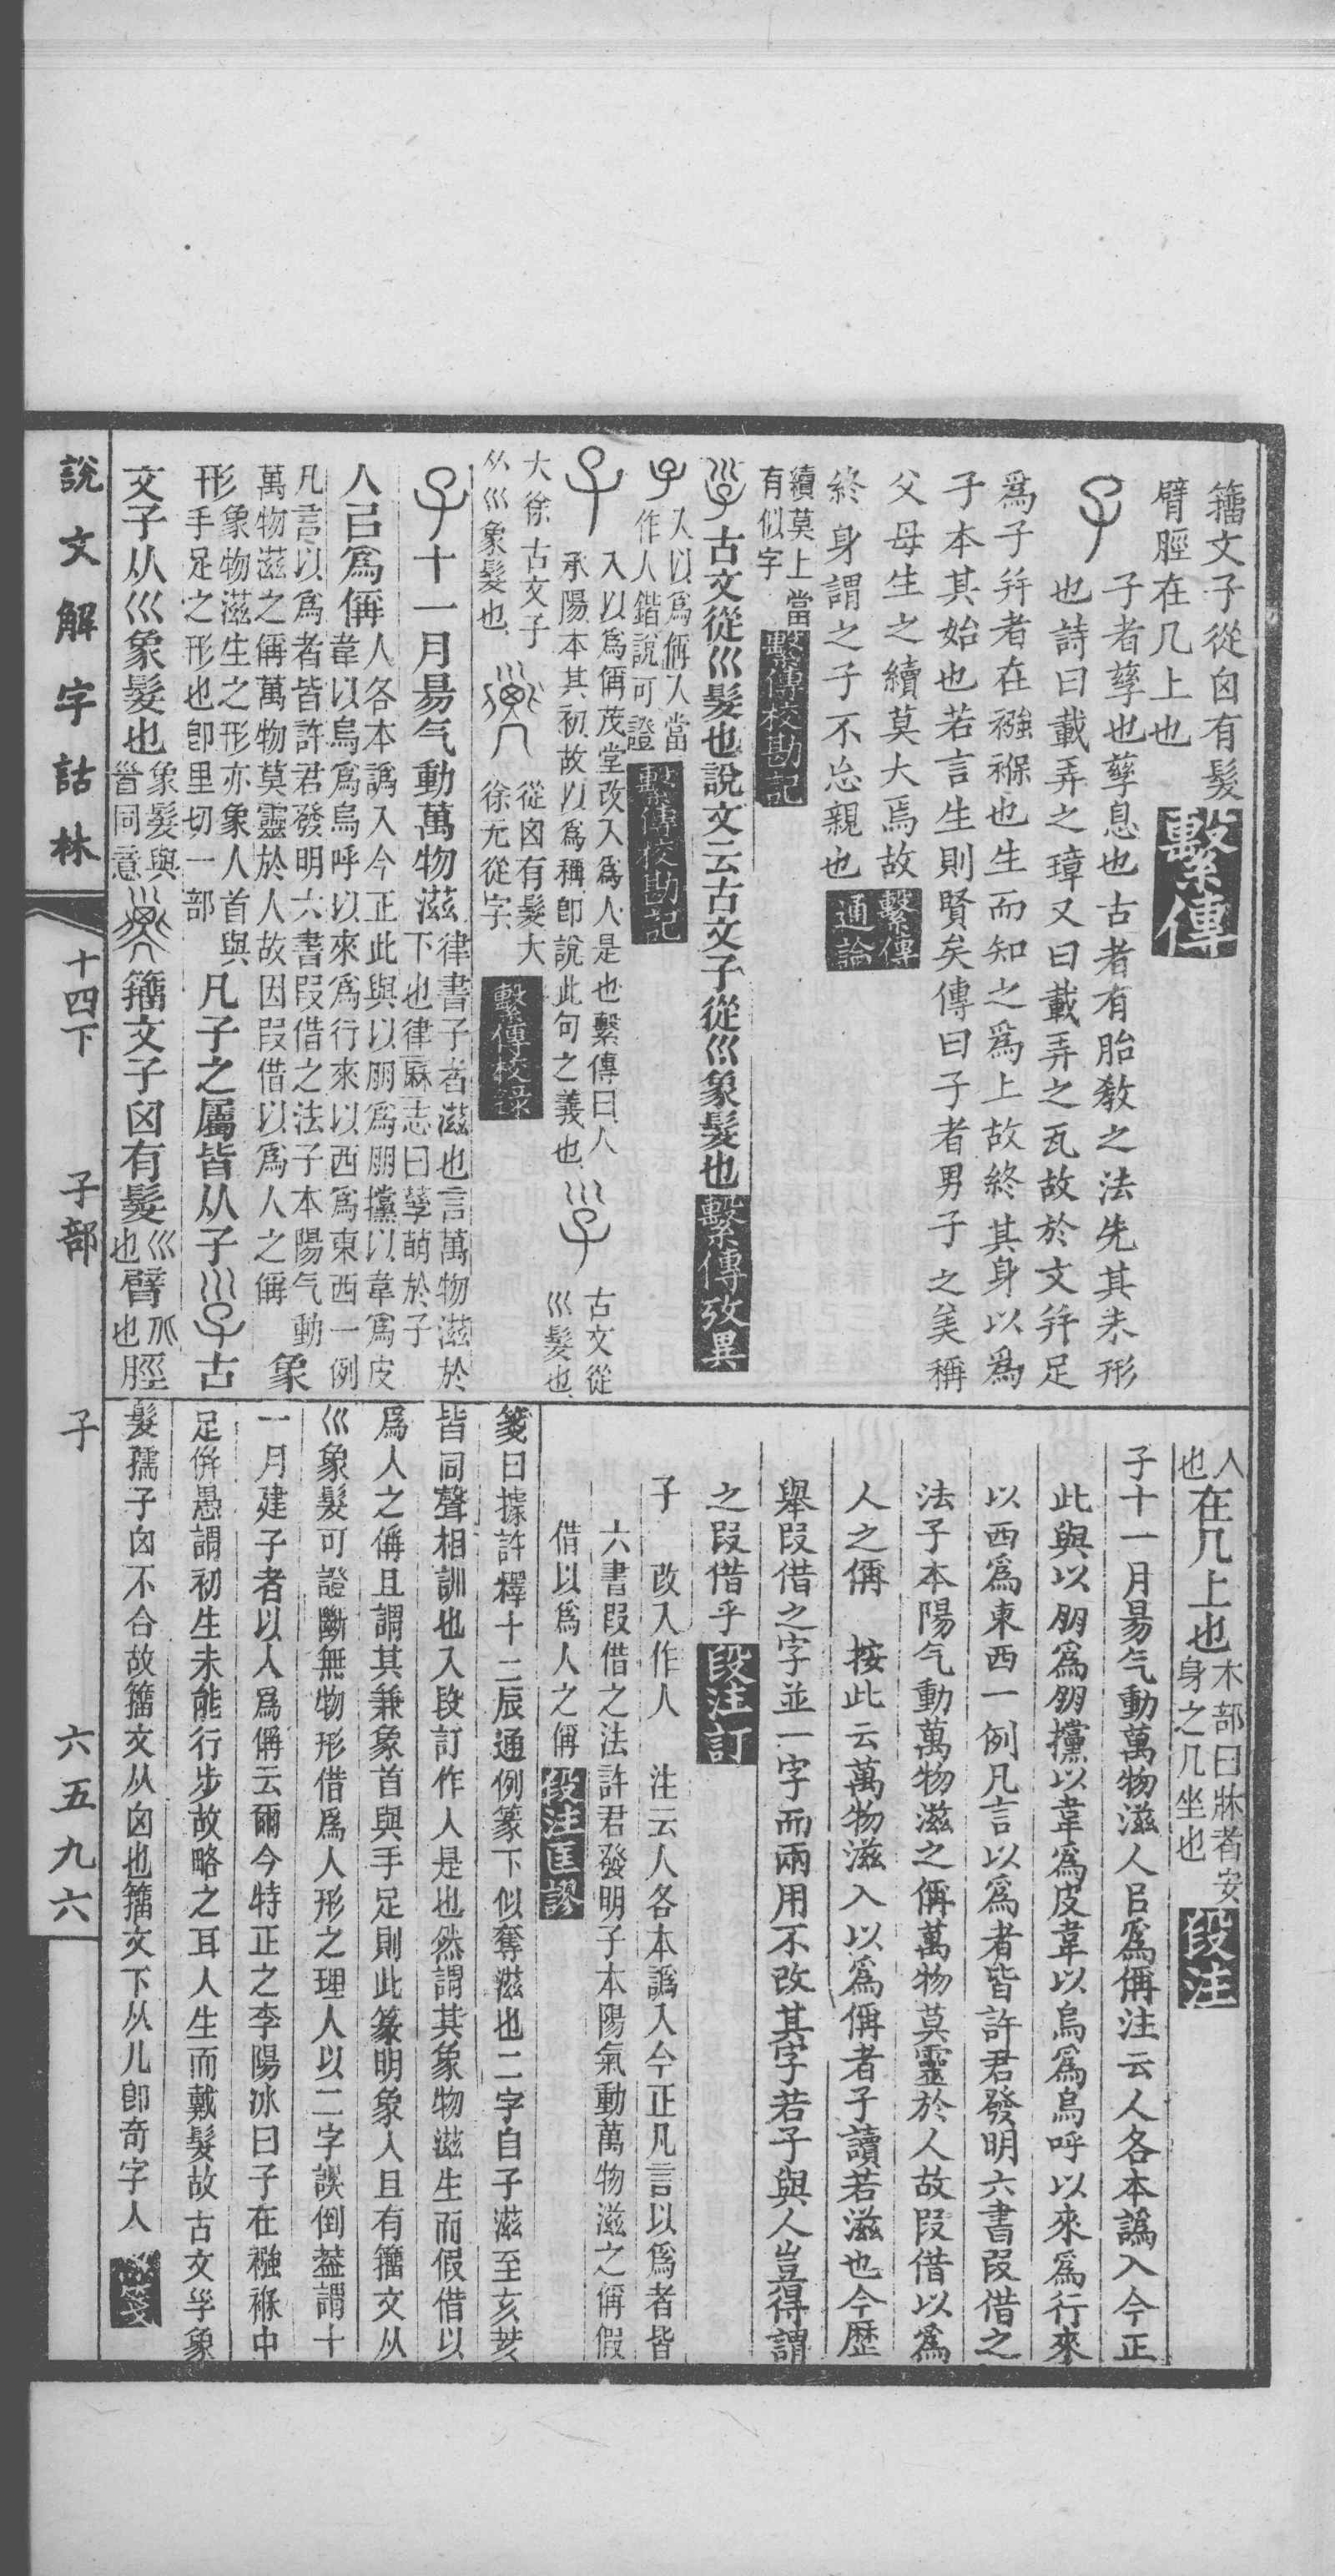 籒文子從囟有髮
臂脛在几上也 繫傳
子者孳也孳息也古者有胎敎之法先其未形
也詩曰載弄之璋又曰載弄之瓦故於文幷足
爲子幷者在襁褓也生而知之爲上故終其身以爲
子本其始也若言生則賢矣傳曰子者男子之美稱
父母生之續莫大焉故
終身謂之子不忘親也 繫傳通論
續莫上當
有似字 繫傳校勘記
古文從巛髮也說文云古文子從巛象髮也 繫傳攷異
子 入以爲偁入當
作人鍇說可證 繫傳校勘記
入以爲偁茂堂改入爲人是也繫傳曰人
承陽本其初故以爲稱卽說此句之義也
古文從
巛髮也
大徐古文子
从巛象髮也
從囟有髮大
徐无從字 繫傳校錄
子十一月昜气動萬物滋
律書子者滋也言萬物滋於
下也律厤志曰孳萌於子
人㠯爲偁
人各本譌入今正此與以朋爲朋攩以韋爲皮
韋以烏爲烏呼以來爲行來以西爲東西一例
凡言以爲者皆許君發明六書叚借之法子本陽气動
萬物滋之偁萬物莫靈於人故因叚借以爲人之偁
象
形
象物滋生之形亦象人首與
手足之形也卽里切一部
凡子之屬皆从子 古
文子从巛象髮也
象髮與
𦣻同意
籒文子囟有髮
巛
也
臂
㐺
也
脛
人
也
在几上也
木部曰牀者安
身之几坐也 段注
子十一月昜气動萬物滋人㠯爲偁注云人各本譌入今正
此與以朋爲朋攩以韋爲皮韋以烏爲烏呼以來爲行來
以西爲東西一例凡言以爲者皆許君發明六書叚借之
法子本陽气動萬物滋之偁萬物莫靈於人故叚借以爲
人之偁 按此云萬物滋入以爲偁者子讀若滋也今歷
舉叚借之字並一字而兩用不改其字若子與人豈得謂
之叚借乎 段注訂
子 改入作人 注云人各本譌入今正凡言以爲者皆
六書叚借之法許君發明子本陽氣動萬物滋之偁假
借以爲人之偁 段注匡謬
箋曰據許釋十二辰通例篆下似奪滋也二字自子滋至亥荄
皆同聲相訓也入段訂作人是也然謂其象物滋生而假借以
爲人之偁且謂其兼象首與手足則此篆明象人且有籒文从
巛象髮可證斷無物形借爲人形之理人以二字誤倒葢謂十
一月建子者以人爲偁云爾今特正之李陽冰曰子在襁褓中
足倂愚謂初生未能行步故略之耳人生而戴髮故古文㜽象
髮孺子囟不合故籒文从囟也籒文下从儿卽奇字人 箋
說文解字詁林
十四下
子部
子
六五九六